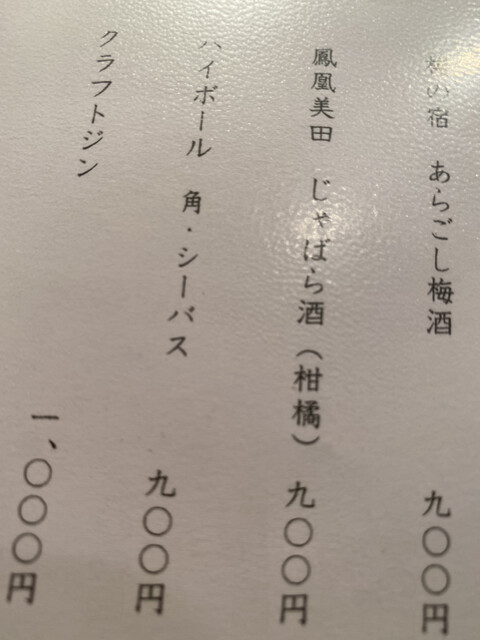 梅の宿 あらごし梅酒 九〇〇円
鳳凰美田 じゃばら酒(柑橘) 九〇〇円
ハイボール 角・シーバス 九〇〇円
クラフトジン 一、〇〇〇円